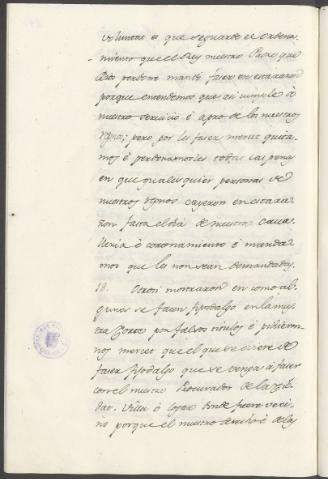 voluntad es que se guarde el ordena-
miento que el Rey nuestro Padre que
Dios perdone mandó facer en esta razon
porque entendemos que asi cumple á
nuestro servicio é á pro de los nuestros
regnos; pero por les facer merced quita-
mos é perdonamosles todas las penas
en que qualesquier personas de
nuestros regnos cayeron en esta ra-
zon fasta el dia de nuestra Cava-
lleria é coronamiento é manda-
mos que les non sean demandadas.
18. Otrosi mostraron en como al-
gunos se facen fijodalgo en la nues-
tra Corte por falsos é pidieron-
nos merced que el que se oviere de
facer fijodalgo que se venga á facer
con el nuestro Procurador é de la Cib-
dat, Villa ó Logar donde fuere veci-
no porque el nuestro derecho é de los